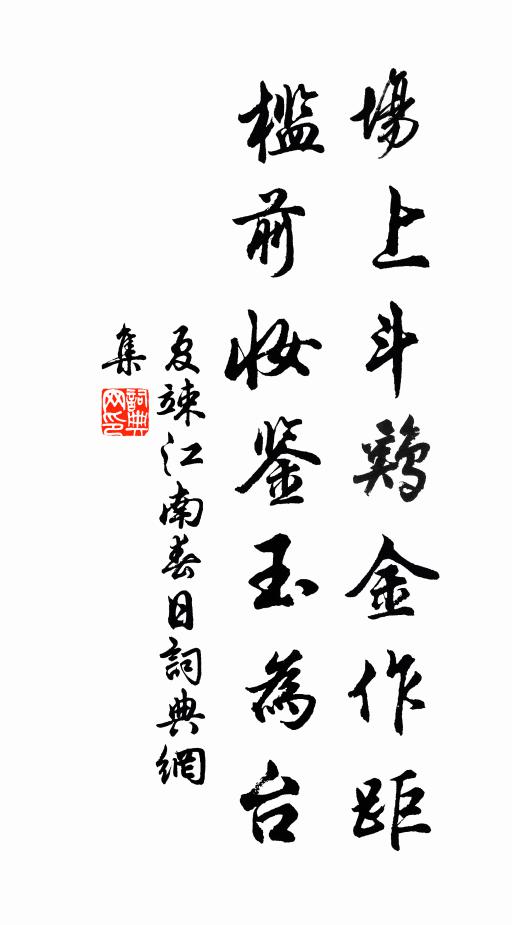 場上斗鷄金作距
檻前妝鉴玉為台
夏竦江南春日詞典網
集
詞典
网印